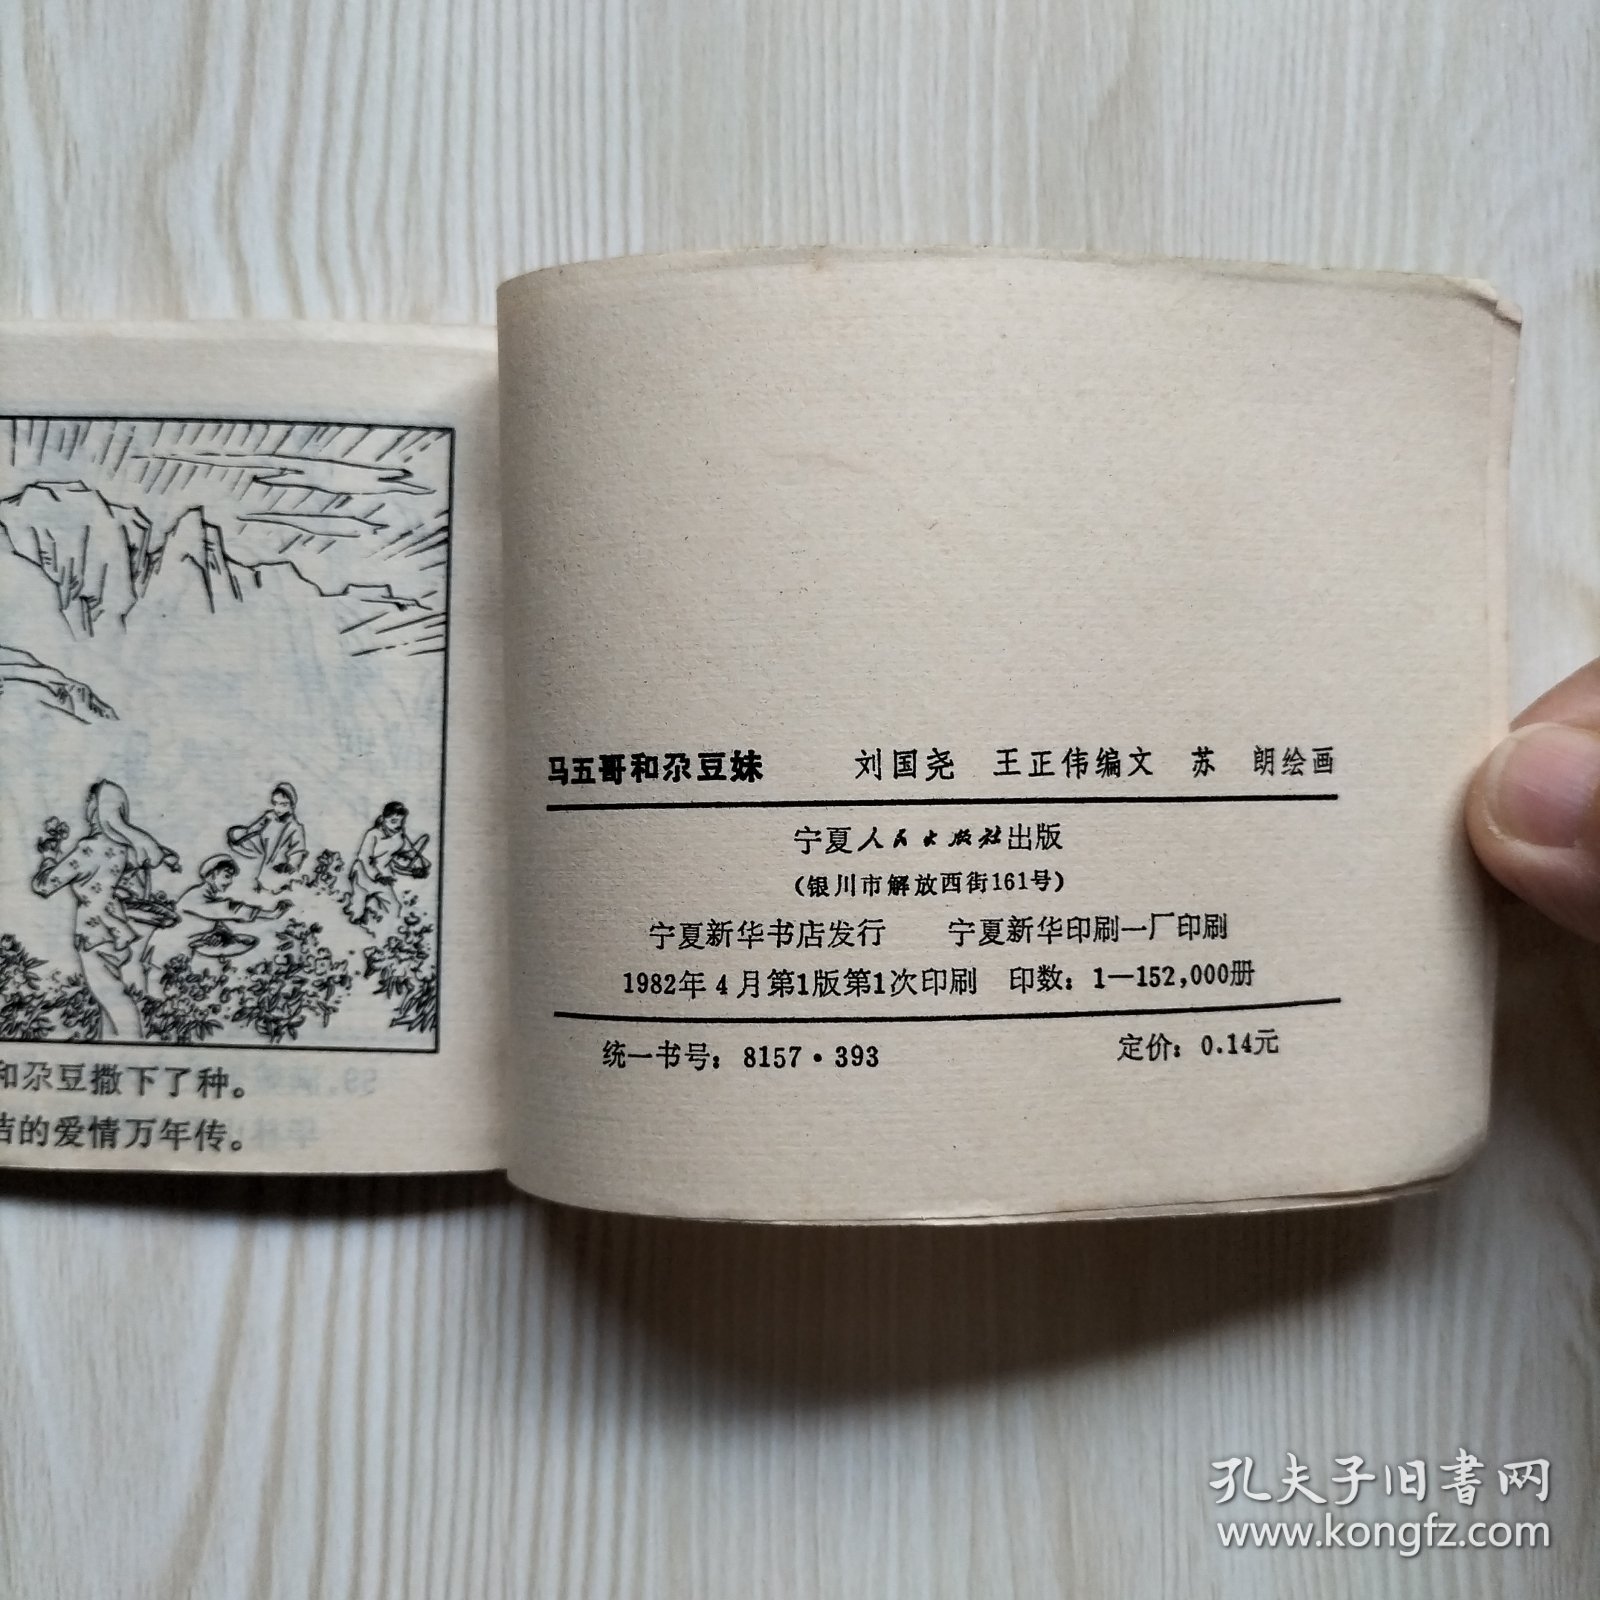 和尕豆撒下了种。
洁的爱情万年传。
马五哥和尕豆妹 刘国尧 王正伟编文 苏 朗绘画
宁夏人民出版社出版
(银川市解放西街161号)
宁夏新华书店发行 宁夏新华印刷一厂印刷
1982年4月第1版第1次印刷 印数：1—152,000册
统一书号：8157·393 定价：0.14元
孔夫子旧书网
www.kongfz.com